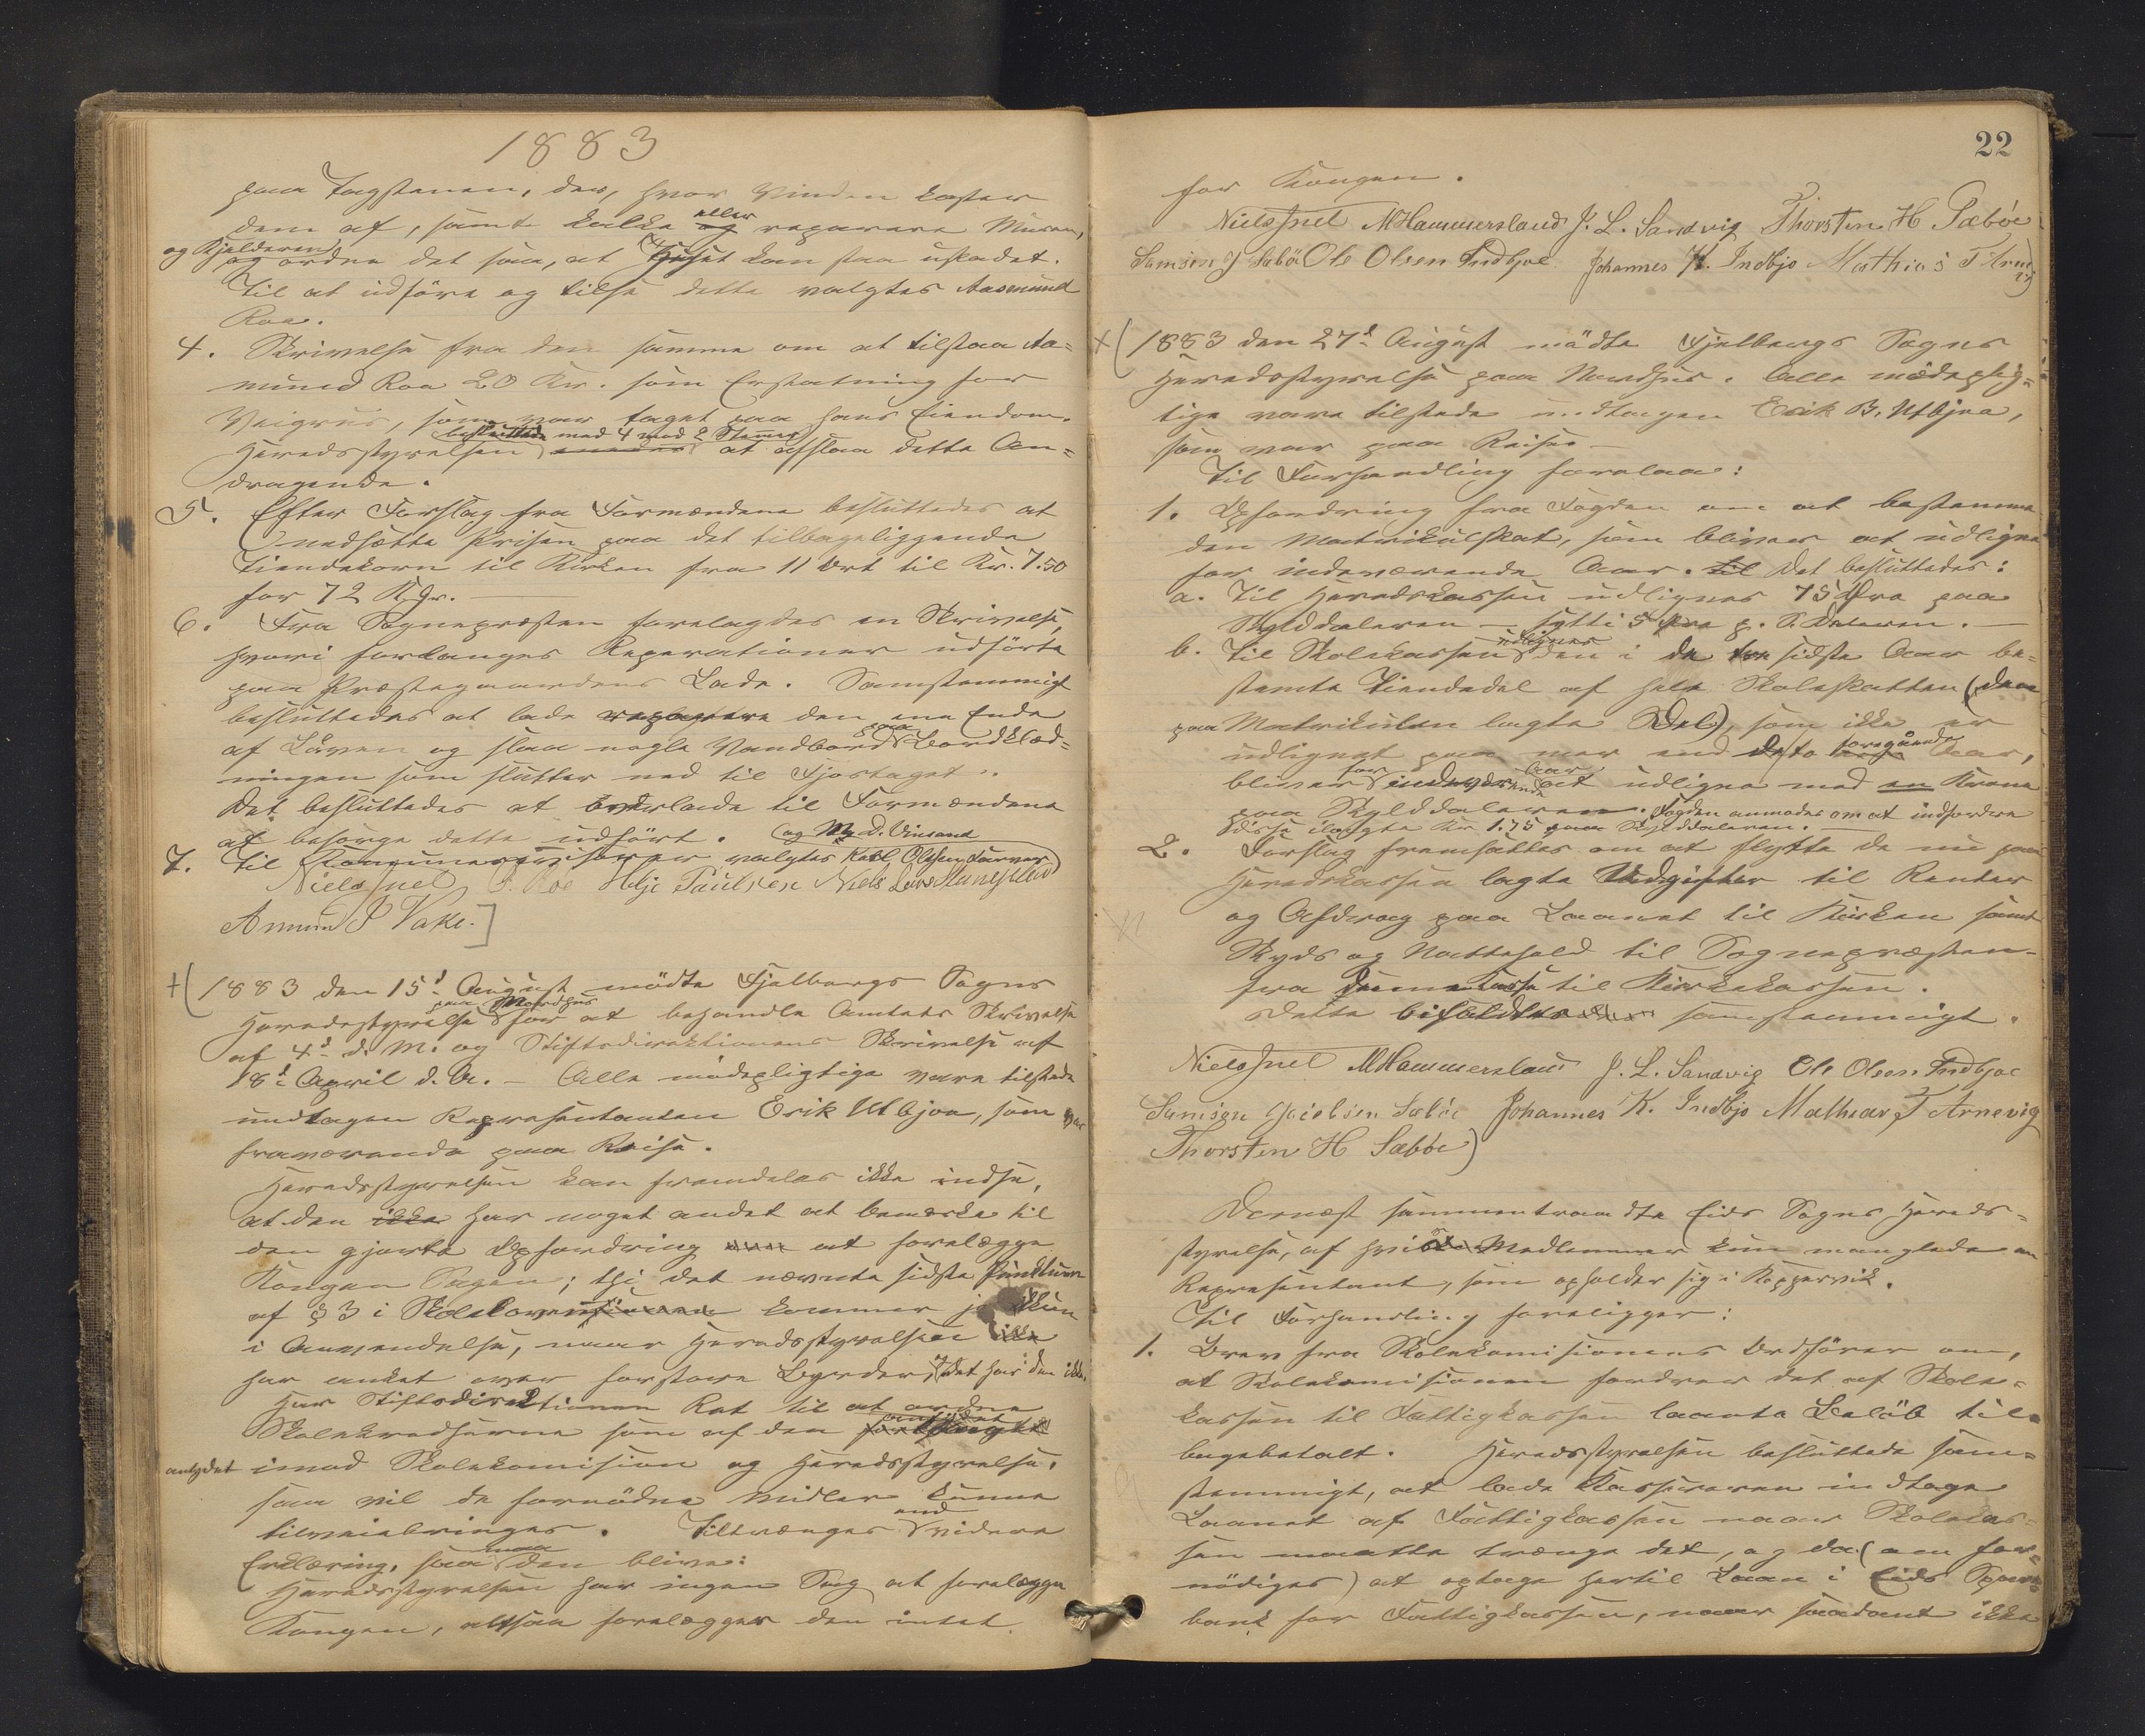 1883
paa Tagstenen, der, hvor Vinden kaster
dem af, samt kalke og eller reparere Muren,
og Kjelderen
og ordne det saa, at Huset kan staa uskadet.
Til at udføre og tilse dette valgtes Aasmund
Roa.
4. Skrivelse fra den samme om at tilstaa Aa=
mund Roa 20 Kr. som Erstatning for
Veigrus, som var taget paa hans Eiendom.
Heredsstyrelsen besluttede med 4 mod 2 Stemmer at afslaa dette An=
dragende.
5. Efter Forslag fra Formændene besluttedes at
nedsætte Prisen paa det tilbageliggende
Tiendekorn til Kirken fra 11 Ort til Kr. 7.50
for 72 Kgr.
6. Fra Sognepræsten forelagdes en Skrivelse,
hvori forlanges Reperationer udførte
paa Præstegaardens Lade. Samstemmigt
besluttedes at lade reparere den ene Ende
af Løven og slaa nogle Vandbord paa Bordklæd=
ningen som slutter ned til Fjostaget.
Det besluttedes at overlade til Formændene
at besørge dette udført.
og M. D. Vinsand
7. Til valgtes Karl Olsen Furnes
Niels Juel P. Roe Helje Paulsen Niels Lars
Amun P Vake.
1883 den 15d August mødte Fjelbergs Sogns
Heredsstyrelse paa Nordhus for at behandle Amtets Skrivelse
af 4d d. M. og Stiftsdirektionens Skrivelse af
18d April d. A. – Alle mødepligtige vare tilstede
undtagen Repræsentanten Erik Utbjoa, som var
fraværende paa Reise.
Heredsstyrelsen kan fremdeles ikke indse,
at den ikke har noget andet at bemærke til
den gjorte Opfordring at forelægge
Kongen Sagen; thi det nævnte sidste Punktum
af § 3 i Skoleloven kommer jo kun
i Anvendelse, naar Heredsstyrelsen
har anket over forstore Byrder, og det har den ikke.
Har Stiftsdirektionen Ret til at ordne
Skolekredserne som af den anført
antydet imod Skolekomision og Heredsstyrelse,
saa vil de fornødne Midler kunne
tilveiebringes. Tiltrænges end videre
Erklæring, saa maa den blive:
Heredsstyrelsen har ingen Sag at forelægge
Kongen, altsaa forelægger den intet
22
for Kongen.
Niels Juel M Hammersland J. L. Sandvig Thorsten H Sæbøe
Samson J Sæbø Ole Olsen Indbjoe Johannes K. Indbjo Mathias T Arne
vig
1883 den 27d August mødte Fjelbergs Sogns
Heredsstyrelse paa Nordhus. Alle mødeplig=
tige vare tilstede undtagen Erik B. Utbjoa,
som var paa Reise –
Til Forhandling forelaa:
1. Opfordring fra Fogden om at bestemme
den Matrikulskat, som bliver at udligne
for indeværende Aar. til Det besluttedes:
a. Til Heredskassen udlignes 75 Øre paa
Skylddaleren – sytti 5 Øre p. S. Daleren. –
b. Til Skolekassen udlignes den i de tre sidste Aar be=
stemte Tiendedel af hele Skoleskatten (den
paa Matrikulen lagte Del), som ikke er
udlignet paa mer end de to foregaaende Aar,
bliver for indeværende Aar at udligne med en Krone
paa Skylddaleren. Fogden anmodes om at indfordre
disse ilagte Kr. 1.75 paa Skylddaleren.
2. Forslag fremsattes om at flytte de nu paa
Heredskassen lagte Udgifter til Renter
og Afdrag paa Laanet til Kirken samt
Skyds og Nattehold til Sognepræsten
fra til Kirkekassen.
Dette bifaldtes samstemmigt.
Niels Juel M Hammersland J. L. Sandvig Ole Olsen Indbjoe
Samson Jacobsen Sæbøe Johannes K. Indbjo Mathias T Arnevig
Thorsten H Sæbøe)
Dernæst sammentraadte Eids Sogns Hereds=
styrelse, af hvis Medlemmer kun manglede en
Repræsentant, som opholder sig i Kopervik.
Til Forhandling foreligger:
1. Brev fra Skolekomisionens Ordfører om,
at Skolekomisionen fordrer det af Skole=
kassen til Fattigkassen laante Beløb til=
bagebetalt. Heredsstyrelsen besluttede sam=
stemmigt, at lade Kassereren indtage
Laanet af Fattigkassen naar Skolekas=
sen maatte trænge det, og da (om for=
nødiges) at optage hertil Laan i Eids Spare=
bank for Fattigkassen, naar saadant ikke